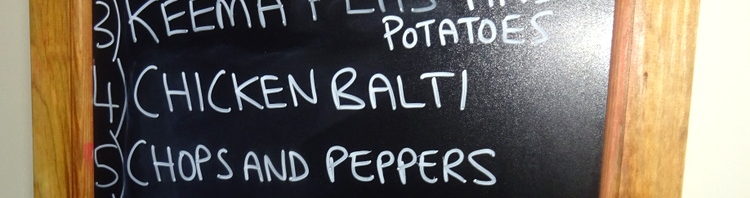 3) KEEMA PEAS AND
POTATOES
4) CHICKEN BALTI
5) CHOPS AND PEPPERS